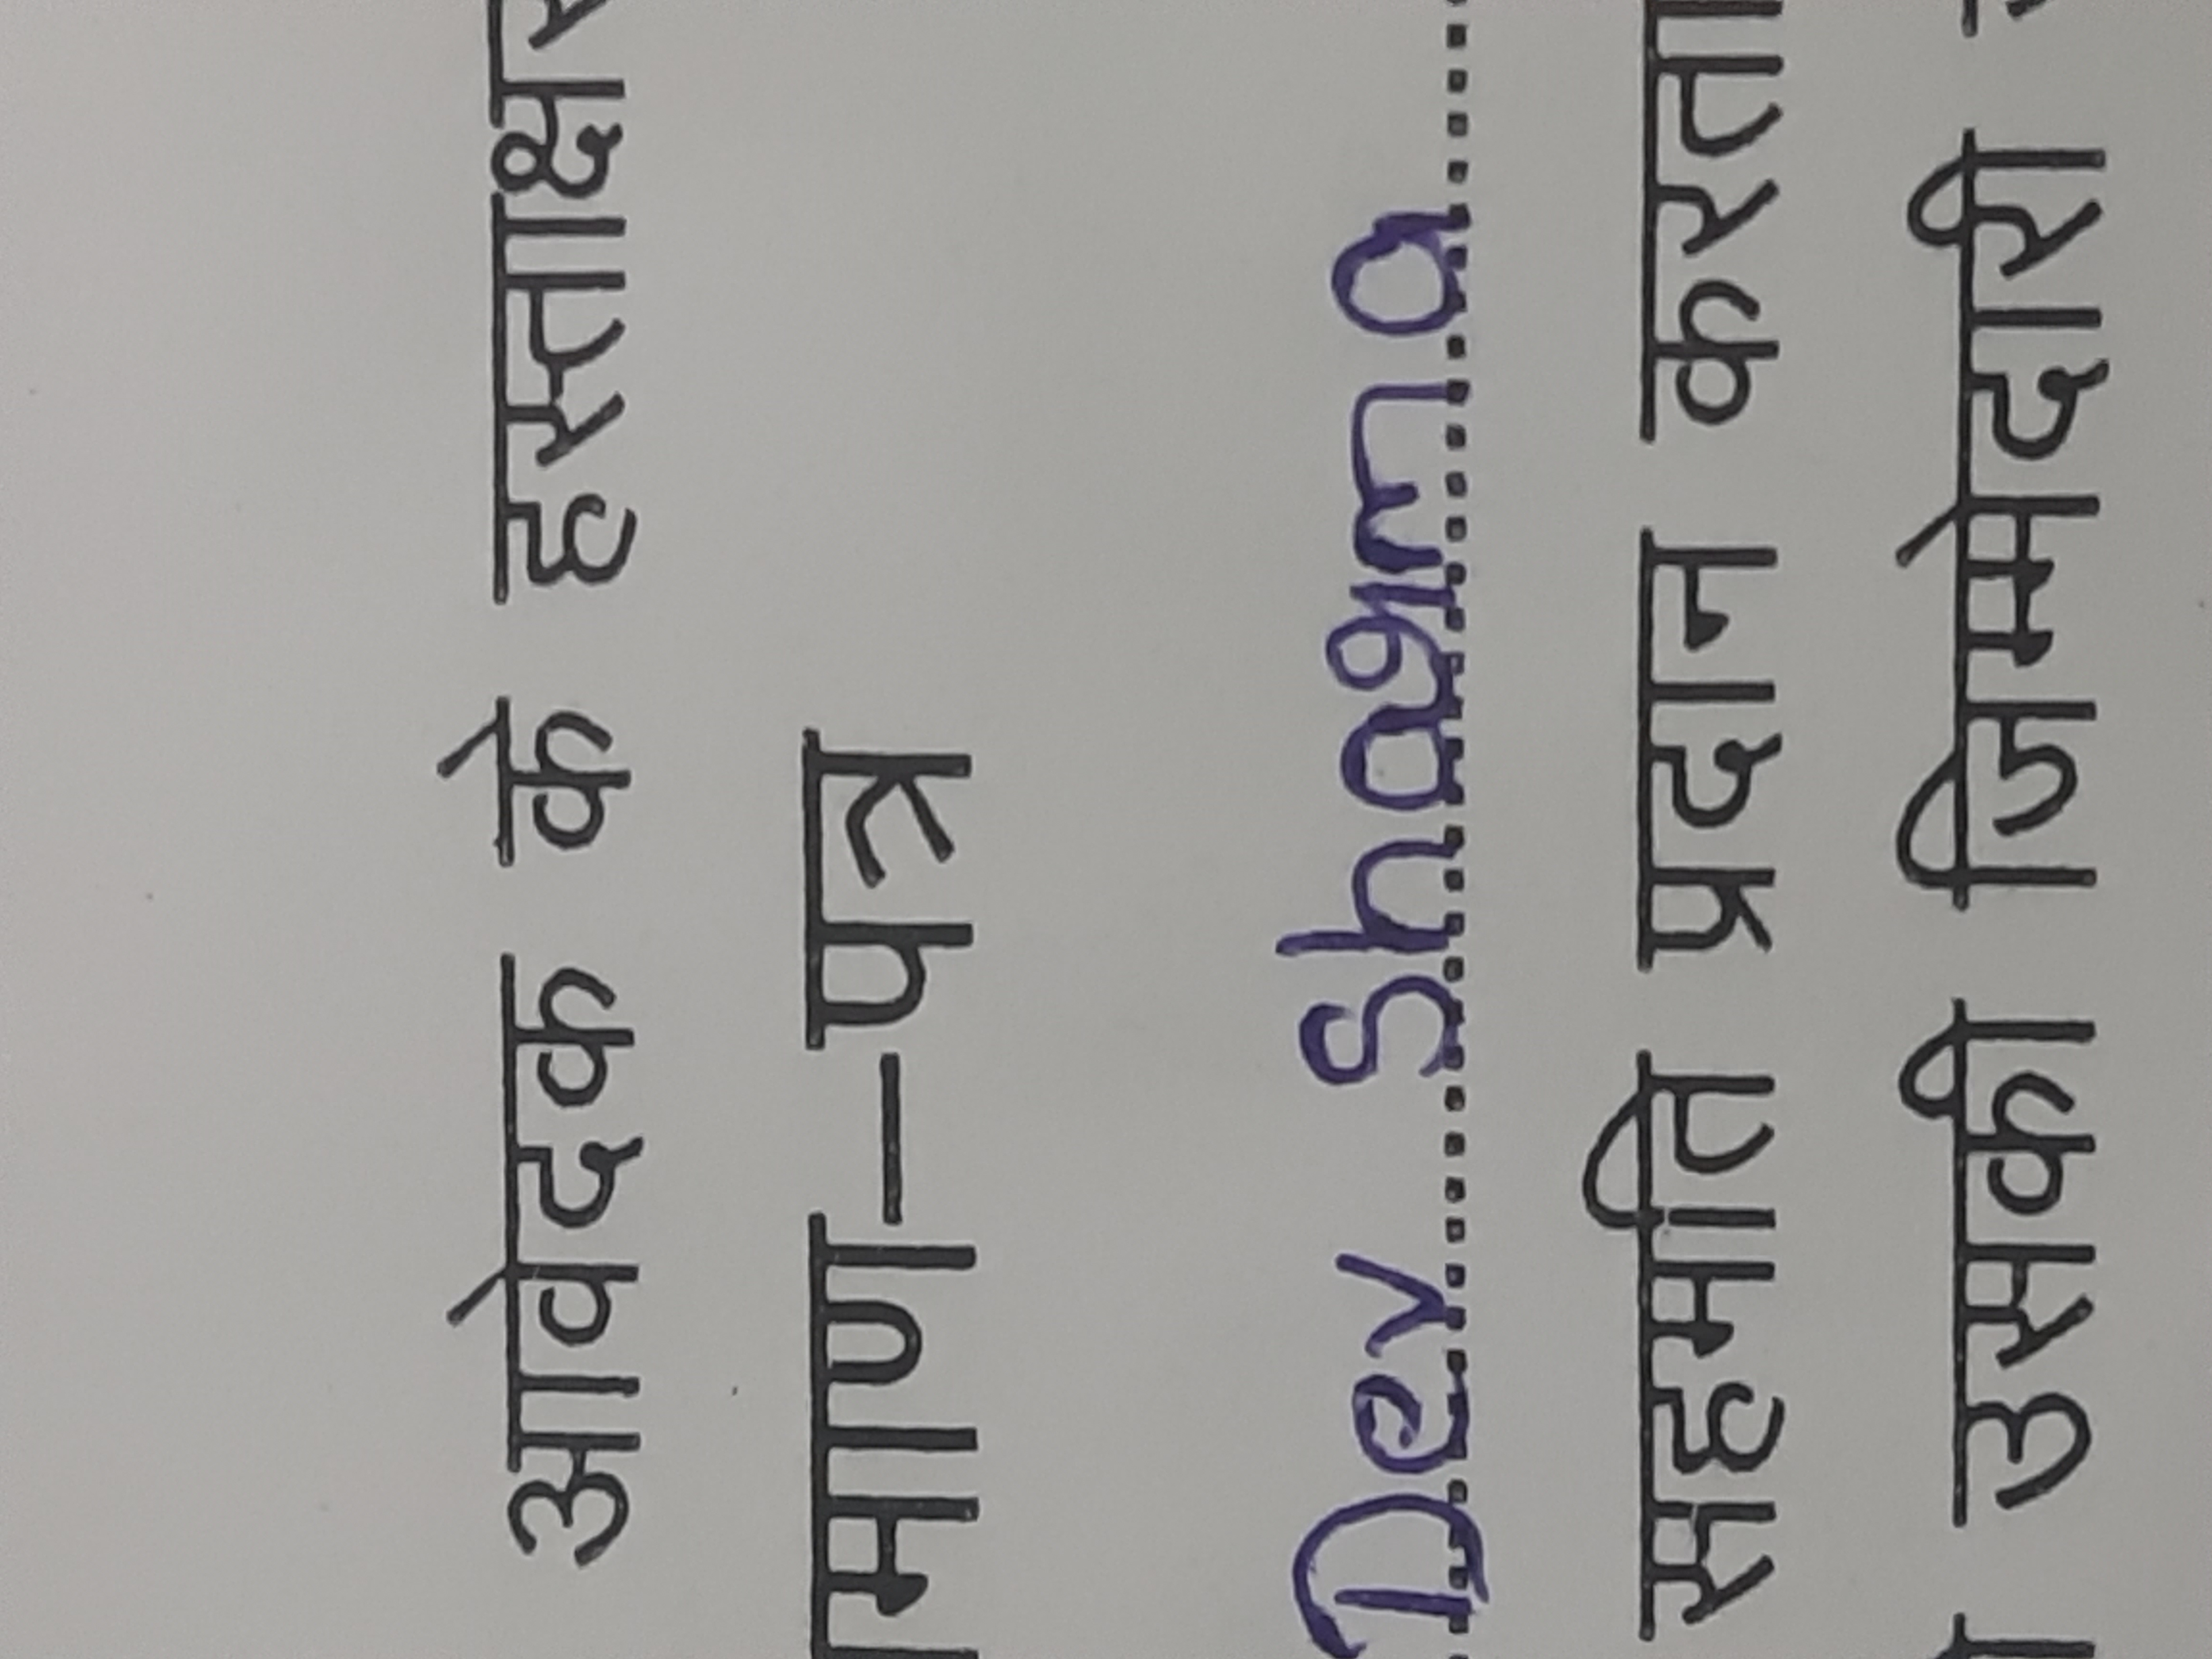 आवेदक के हस्ताक्षर
माण–पत्र
Dev Sharma
सहमति प्रदान करता
उसकी जिम्मेदारी